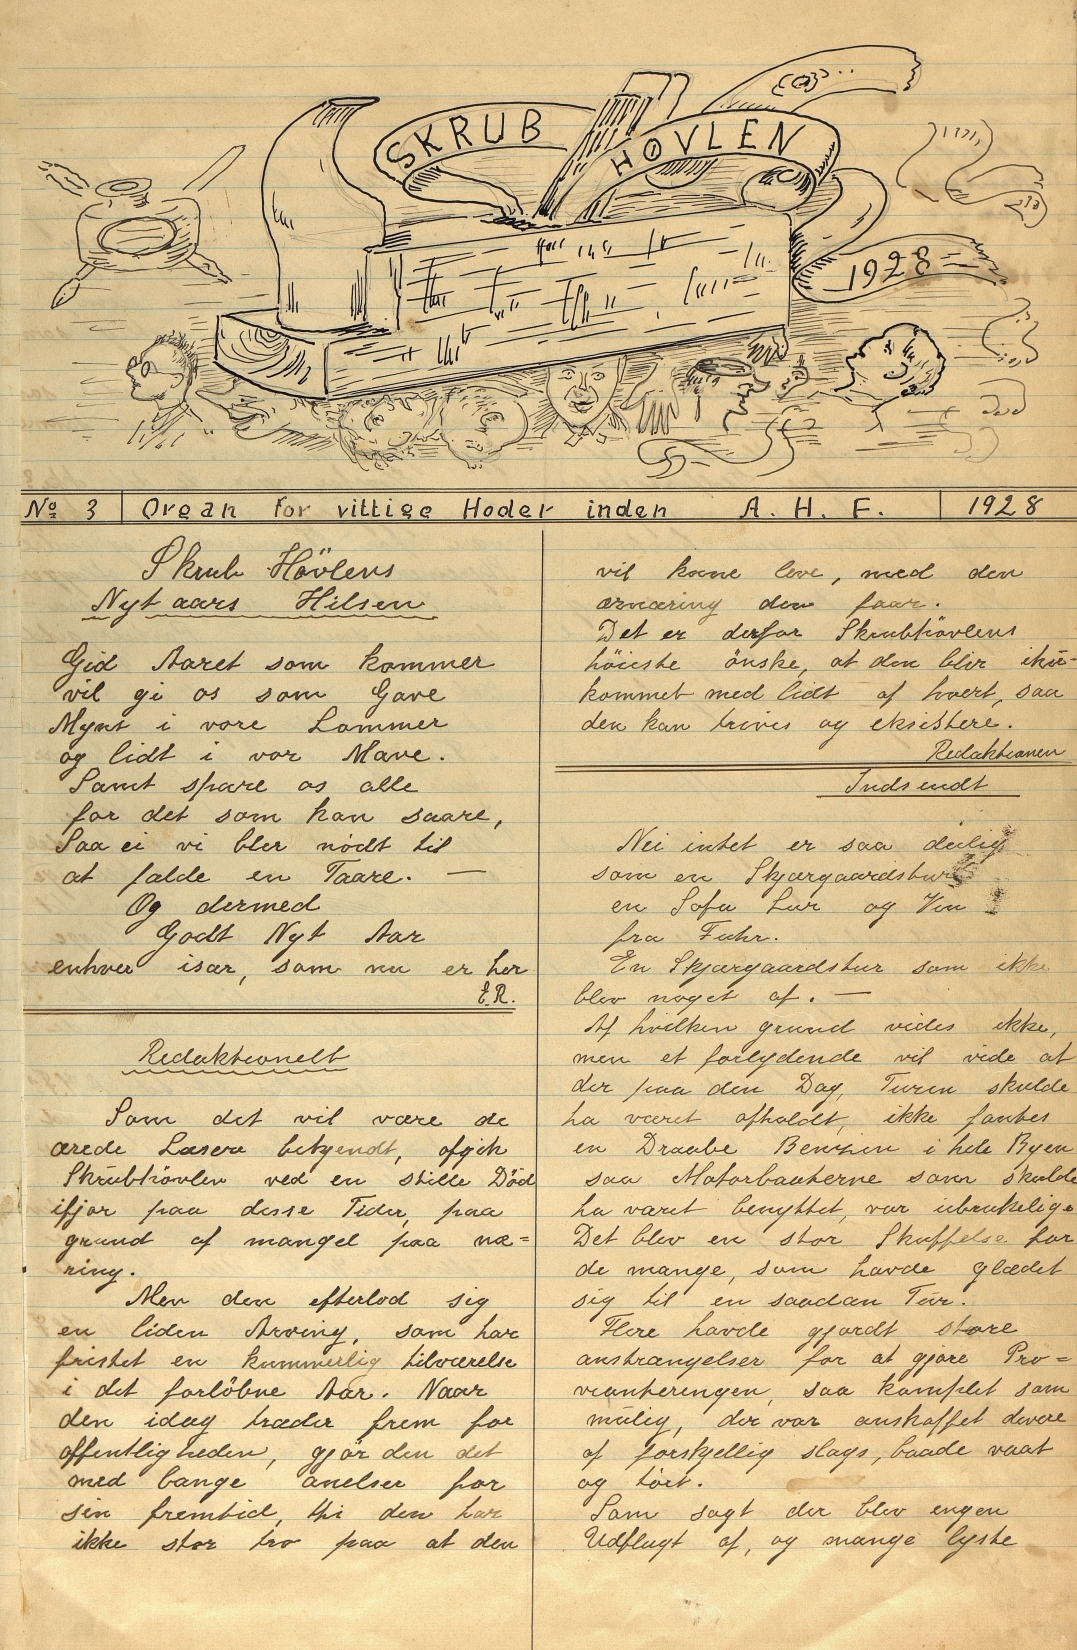 SKRUB HØVLEN
1928
No 3 Organ for vittige Hoder inden A. H. F. 1928
Skrub Hövlens
Nyt aars Hilsen
Gid Aaret som kommer
vil gi os som Gave
Mynt i vore Lommer
og lidt i vor Mave.
Samt spare os alle
for det som kan saare,
Saa ei vi bler nödt til
at fælde en Taare. —
Og dermed
Godt Nyt Aar
enhver især, som nu er her
E.R.
Redaktionelt
Som det vil være de
ærede Læsere bekjendt, afgik
Skrubhövlen ved en stille Död
ifjor paa disse Tider, paa
grund af mangel paa næ=
ring.
Men den efterlod sig
en liden Arving, som har
fristet en kummerlig tilværelse
i det forlöbne Aar. Naar
den idag træder frem for
offentligheden, gjör den det
med bange anelser for
sin fremtid, thi den har
ikke stor tro paa at den
vil kune leve, med den
ernæring den faar.
Det er derfor Skrubhövlens
höieste önske, at den blir ihu=
kommet med lidt af hvert, saa
den kan trives og eksistere.
Redaktionen
Indsendt
Nei intet er saa deilig
som en Skjærgaardstur
en Sofa Lur og Vin
fra Fuhr.
En Skjærgaardstur som ikke
blev noget af. —
Af hvilken grund vides ikke,
men et forlydende vil vide at
der paa den Dag, Turen skulde
ha været afholdt, ikke fantes
en Draabe Benzin i hele Byen
saa Motorbaaterne som skulde
ha været benyttet, var ubrukelige
Det blev en stor Skuffelse for
de mange, som havde glædet
sig til en saadan Tur.
Flere havde gjordt store
anstrængelser for at gjøre Pro=
vianteringen, saa komplet som
mulig, der var anskaffet
af forskjellig slags, baade vaat
og tört.
Som sagt der blev engen
Udflugt af, og mange lyste